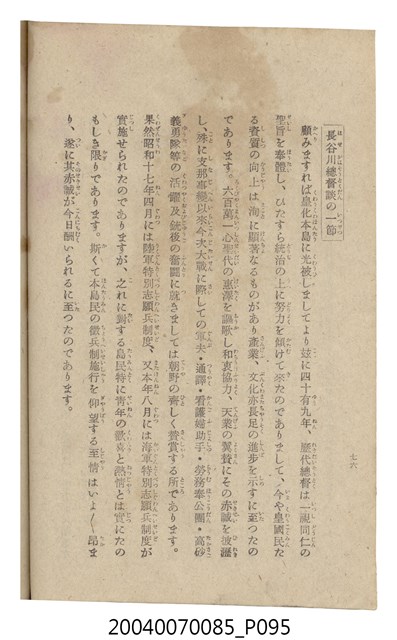 長谷川總督談の一節
顧みますれば皇化本島に光被しましてより玆に四十有九年、歷代總督は一視同仁の
聖旨を奉體し、ひたすら統治の上に努力を傾けて來たのでありまして、今や皇國民た
る資質の向上は洵に顯著なるものがあり產業、文化亦長足の進步を示すに至つたの
であります。六百萬一心聖代の惠澤を謳歌し和衷協力、天業の翼贊にその赤誠を披瀝
し、殊に支那事變以來今次大戰に際しての軍夫・通譯・看護婦助手・勞務奉公團・高砂
義勇隊等の活躍及銃後の奮鬪に就きましては朝野の齊しく贊賞する所であります。
果然昭和十七年四月には陸軍特別志願兵制度、又本年八月には海軍特別志願兵制度が
實施せられたのでありますが、之れに對する島民特に靑年の歡喜と熱情とは實にたの
もしき限りであります。斯くて本島民の徵兵制施行を仰望する至情はいよ〱昂ま
り、遂に其赤誠が今日酬いられるに至つたのであります。
七六
20040070085_P095